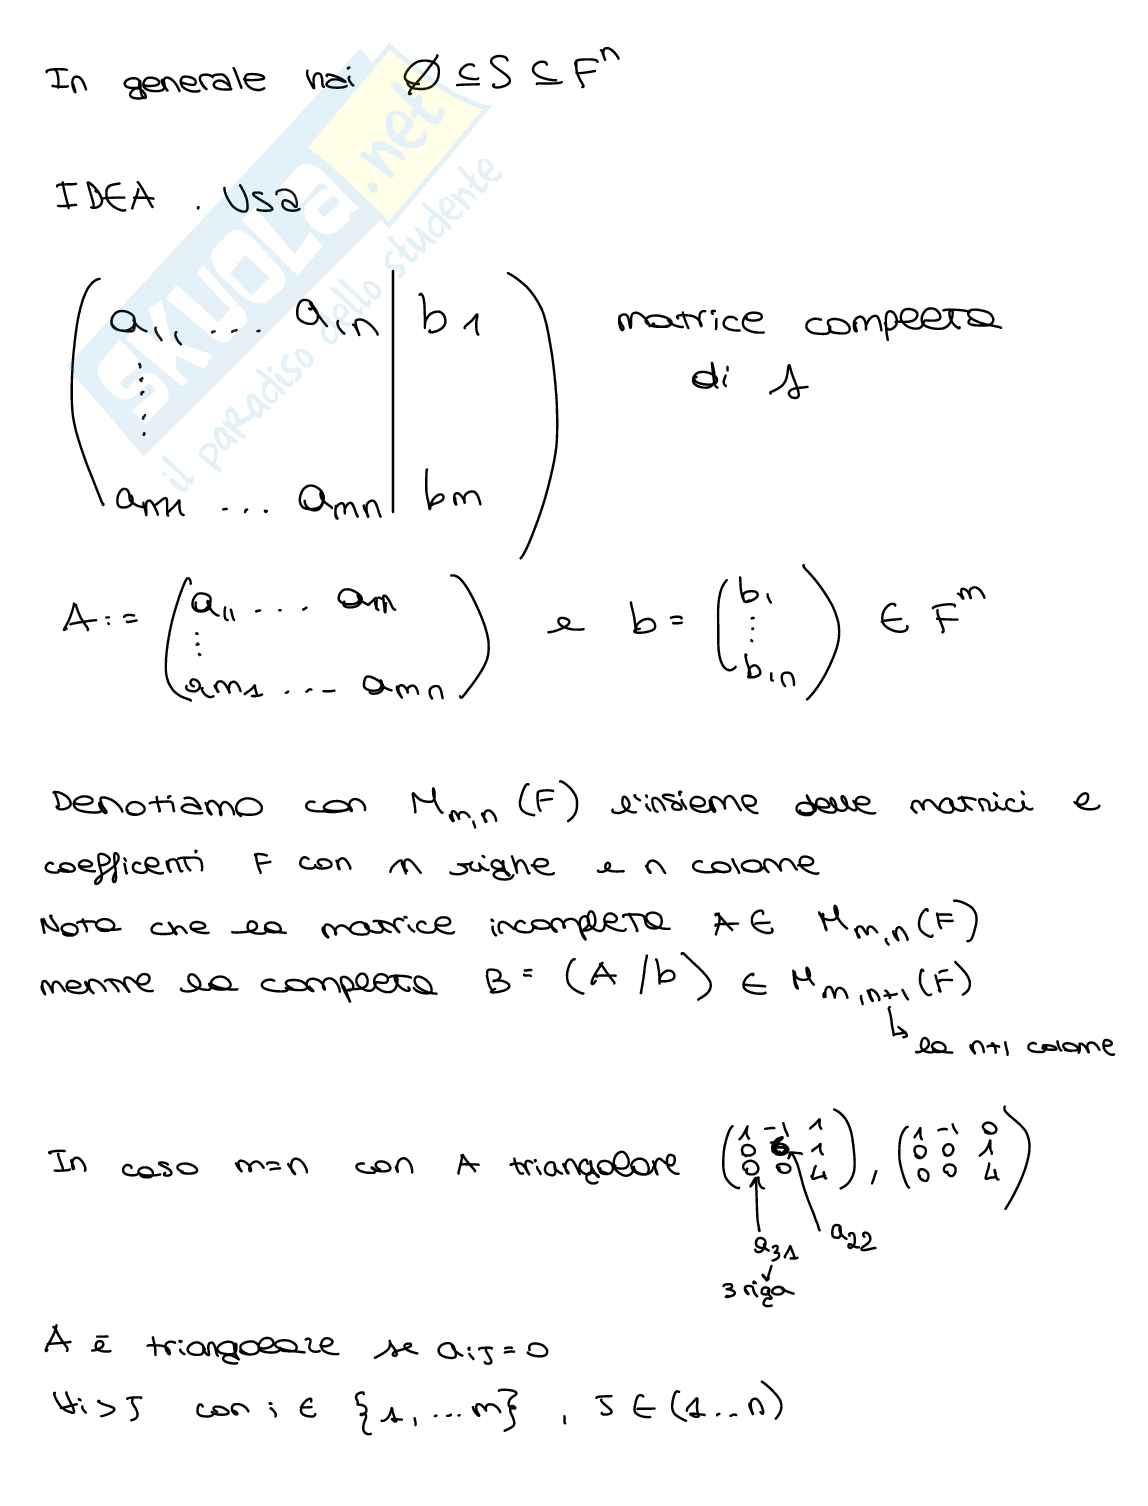 In generale hai ∅ ⊆ S ⊆ Fⁿ
SKUOLA.net
il paradiso dello studente
IDEA . Usa
( a₁₁ ... a₁ₙ | b₁ ) matrice completa
⋮ di s
( aₘ₁ ... aₘₙ | bₘ )
A := ( a₁₁ ... a₁ₙ ⋮ aₘ₁ ... aₘₙ ) e b = ( b₁ ⋮ b₁ₙ ) ∈ Fᵐ
Denotiamo con Mₘ,ₙ (F) l'insieme delle matrici e
coefficenti F con m righe e n colonne
Nota che la matrice incompleta A ∈ Mₘ,ₙ (F)
mentre la completa B = (A / b) ∈ Mₘ,ₙ₊₁ (F)
↳ la n+1 colonne
In caso m=n con A triangolare ( 1 -1 1 ) , ( 1 -1 0 )
( 0 0 1 ) ( 0 0 1 )
( 0 0 4 ) ( 0 0 4 )
a₃₁ a₂₂
3 riga
A è triangolare se aᵢⱼ = 0
∀i > J con i ∈ {1, ... m} , J ∈ (1 ... n)